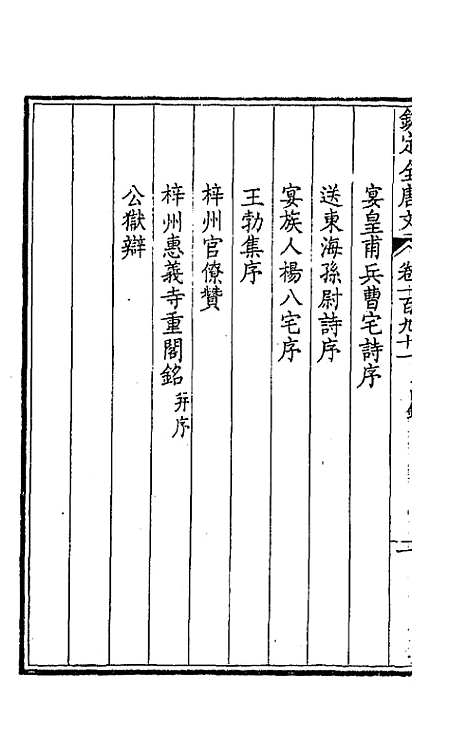 欽定全唐文 卷一百九十一 目錄
宴皇甫兵曹宅詩序
送東海孫尉詩序
宴族人楊八宅序
王勃集序
梓州官僚贊
梓州惠義寺重閣銘 并序
公獄辯